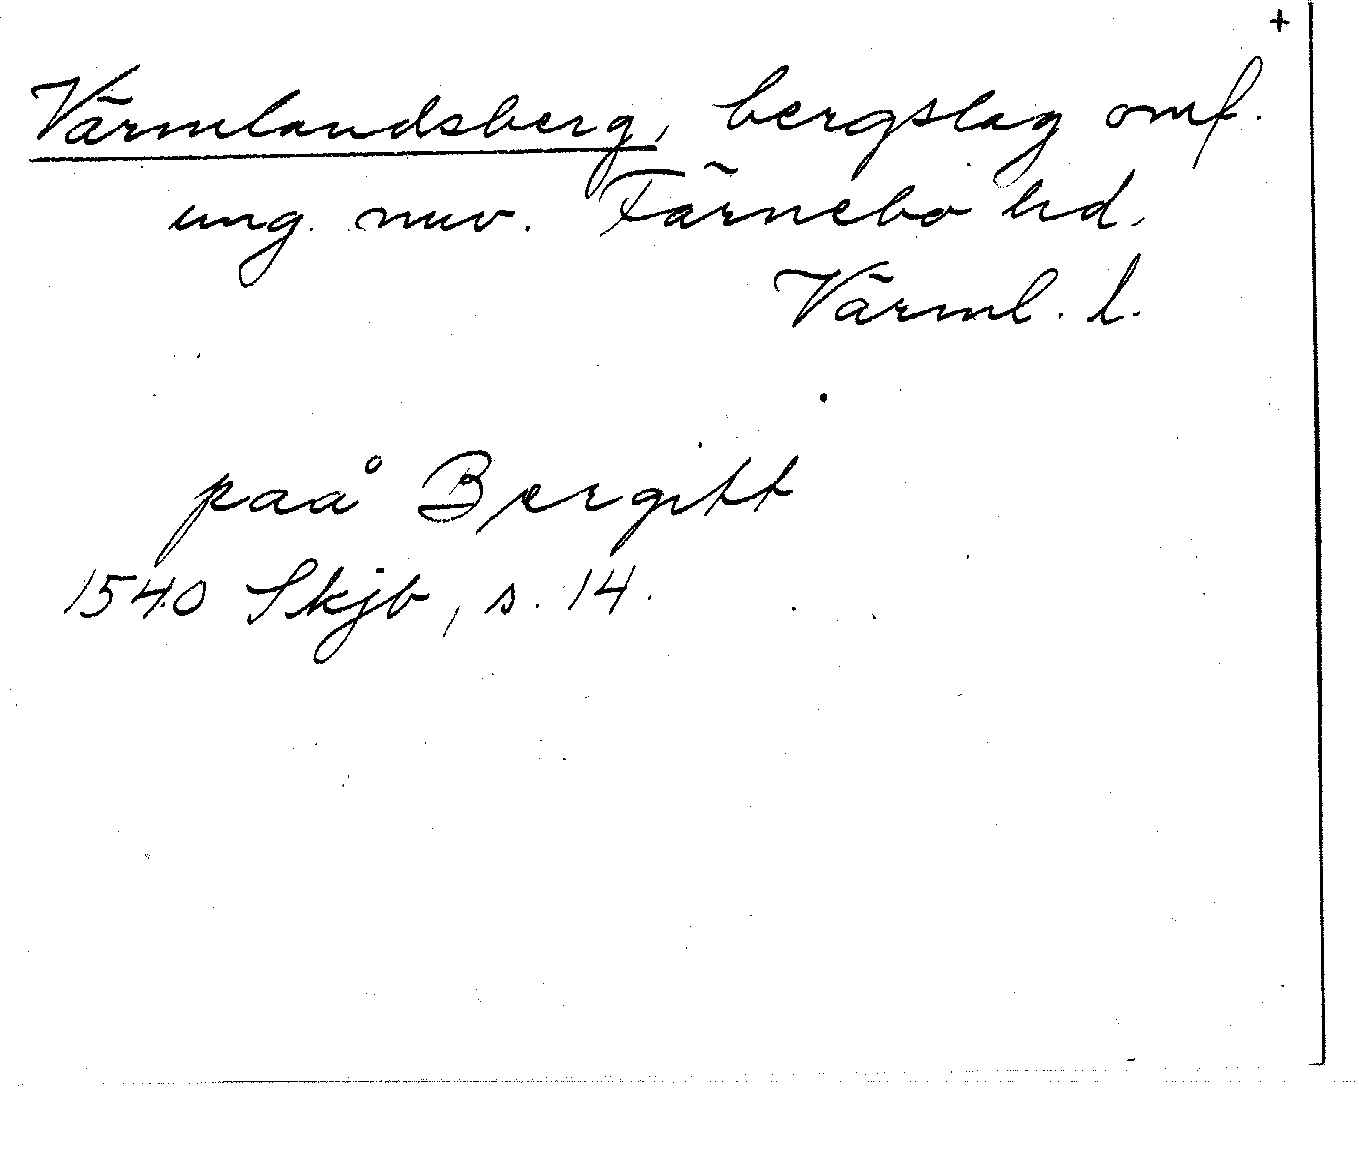 +
Värmlandsberg, bergslag omf.
ung. nuv. Färnebo hd,
Värml. l.
paå Bergitt
1540 Skjb, s. 14.